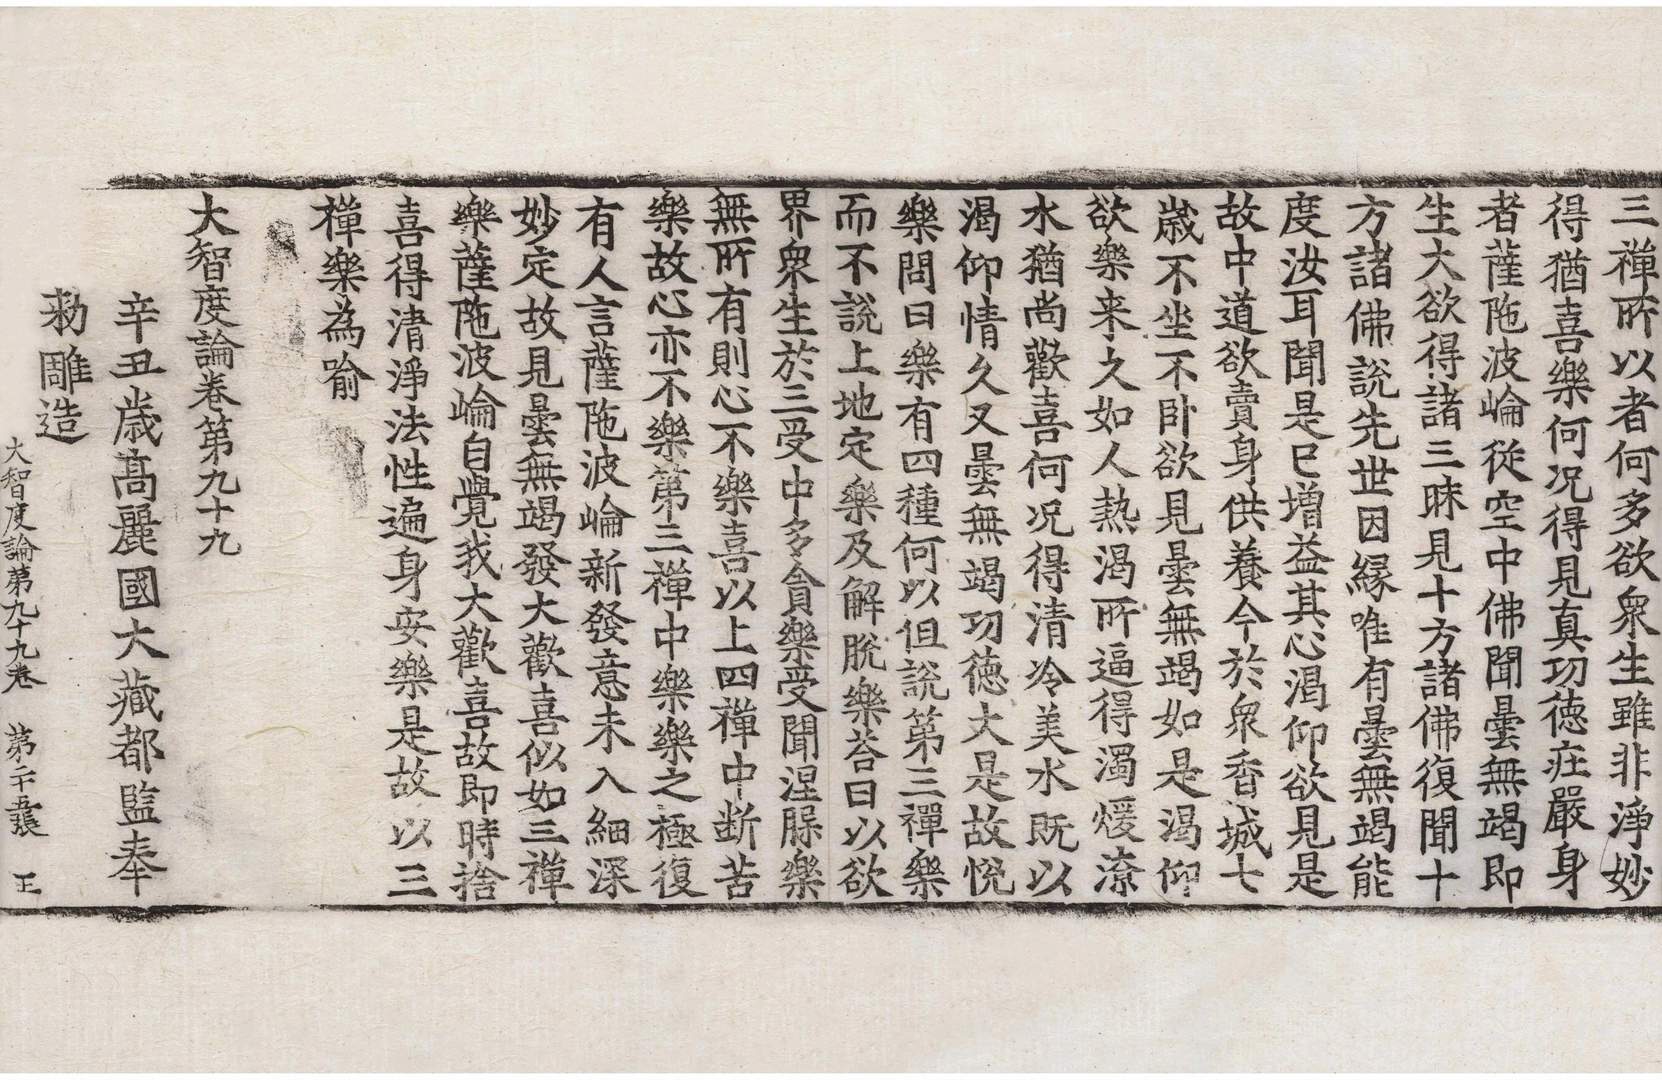 三禪所以者何多欲衆生雖非淨妙
得猶喜樂何况得見真功德莊嚴身
者薩陁波崘從空中佛聞曇無竭即
生大欲得諸三昧見十方諸佛復聞十
方諸佛說先世因緣唯有曇無竭能
度汝耳聞是已增益其心渴仰欲見是
故中道欲賣身供養今於衆香城七
歲不坐不卧欲見曇無竭如是渴仰
欲樂来久如人熱渴所逼得濁煖潦
水猶尚歡喜何况得清冷美水既以
渴仰情久又曇無竭功德大是故悅
樂問曰樂有四種何以但說第三禪樂
而不說上地定樂及解脫樂荅曰以欲
界衆生於三受中多貪樂受聞涅槃樂
無所有則心不樂喜以上四禪中断苦
樂故心亦不樂第三禪中樂樂之極復
有人言薩陁波崘新發意未入細深
妙定故見曇無竭發大歡喜似如三禪
樂薩陁波崘自覺我大歡喜故即時捨
喜得清淨法性遍身安樂是故以三
禪樂為喻
大智度論卷第九十九
辛丑歲髙麗國大藏都監奉
勑雕造
大智度論第九十九卷 第二十五張 王